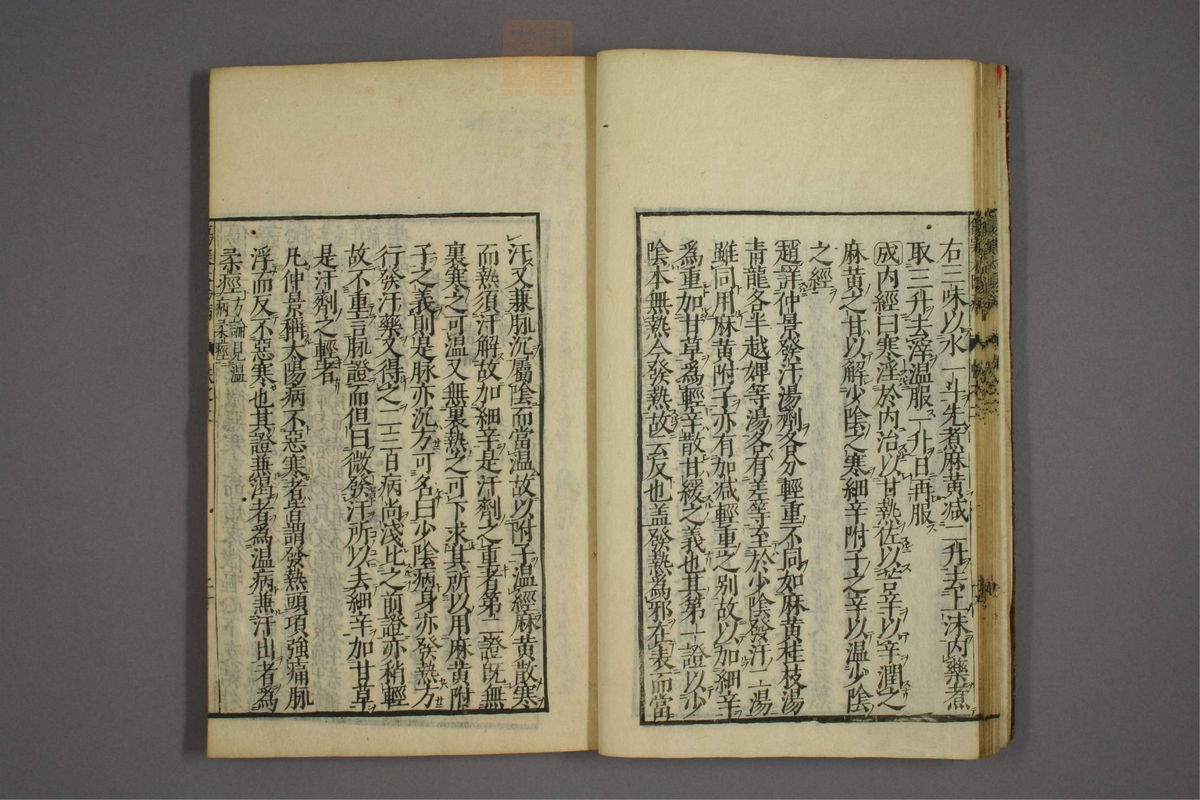 右三味以水一斗先煮麻黄減二升去上沫内藥煮
取三升去滓温服一升日再服
成内經曰寒淫於内治以甘熱佐以苦辛以辛潤之
麻黄之甘以解少陰之寒細辛附子之辛以温少陰
之經
趙詳仲景發汗湯劑各分輕重不同如麻黄桂枝湯
青龍各半越婢等湯各有差等至於少陰發汗二湯
雖同用麻黄附子亦有加減輕重之别故以加細辛
爲重加甘草爲輕辛散甘緩之義也其第一證以少
陰本無熱今發熱故云反也盖發熱爲邪在表而當
汗又兼脉沉屬陰而當温故以附子温經麻黄散寒
而熱須汗解故加細辛是汗劑之重者第二證既無
裏寒之可温又無裏熱之可下求其所以用麻黄附
子之義則是脉亦沉方可名曰少陰病身亦發熱方
行發汗藥又得之二三日病尚淺比之前證亦稍輕
故不重言脉證而但曰微發汗所以去細辛加甘草
是汗劑之輕者
凡仲景稱太陽病不惡寒者皆謂發熱頭項強痛脉
浮而反不惡寒也其證兼渴者爲温病兼汗出者爲
柔痙方論見温病柔痙